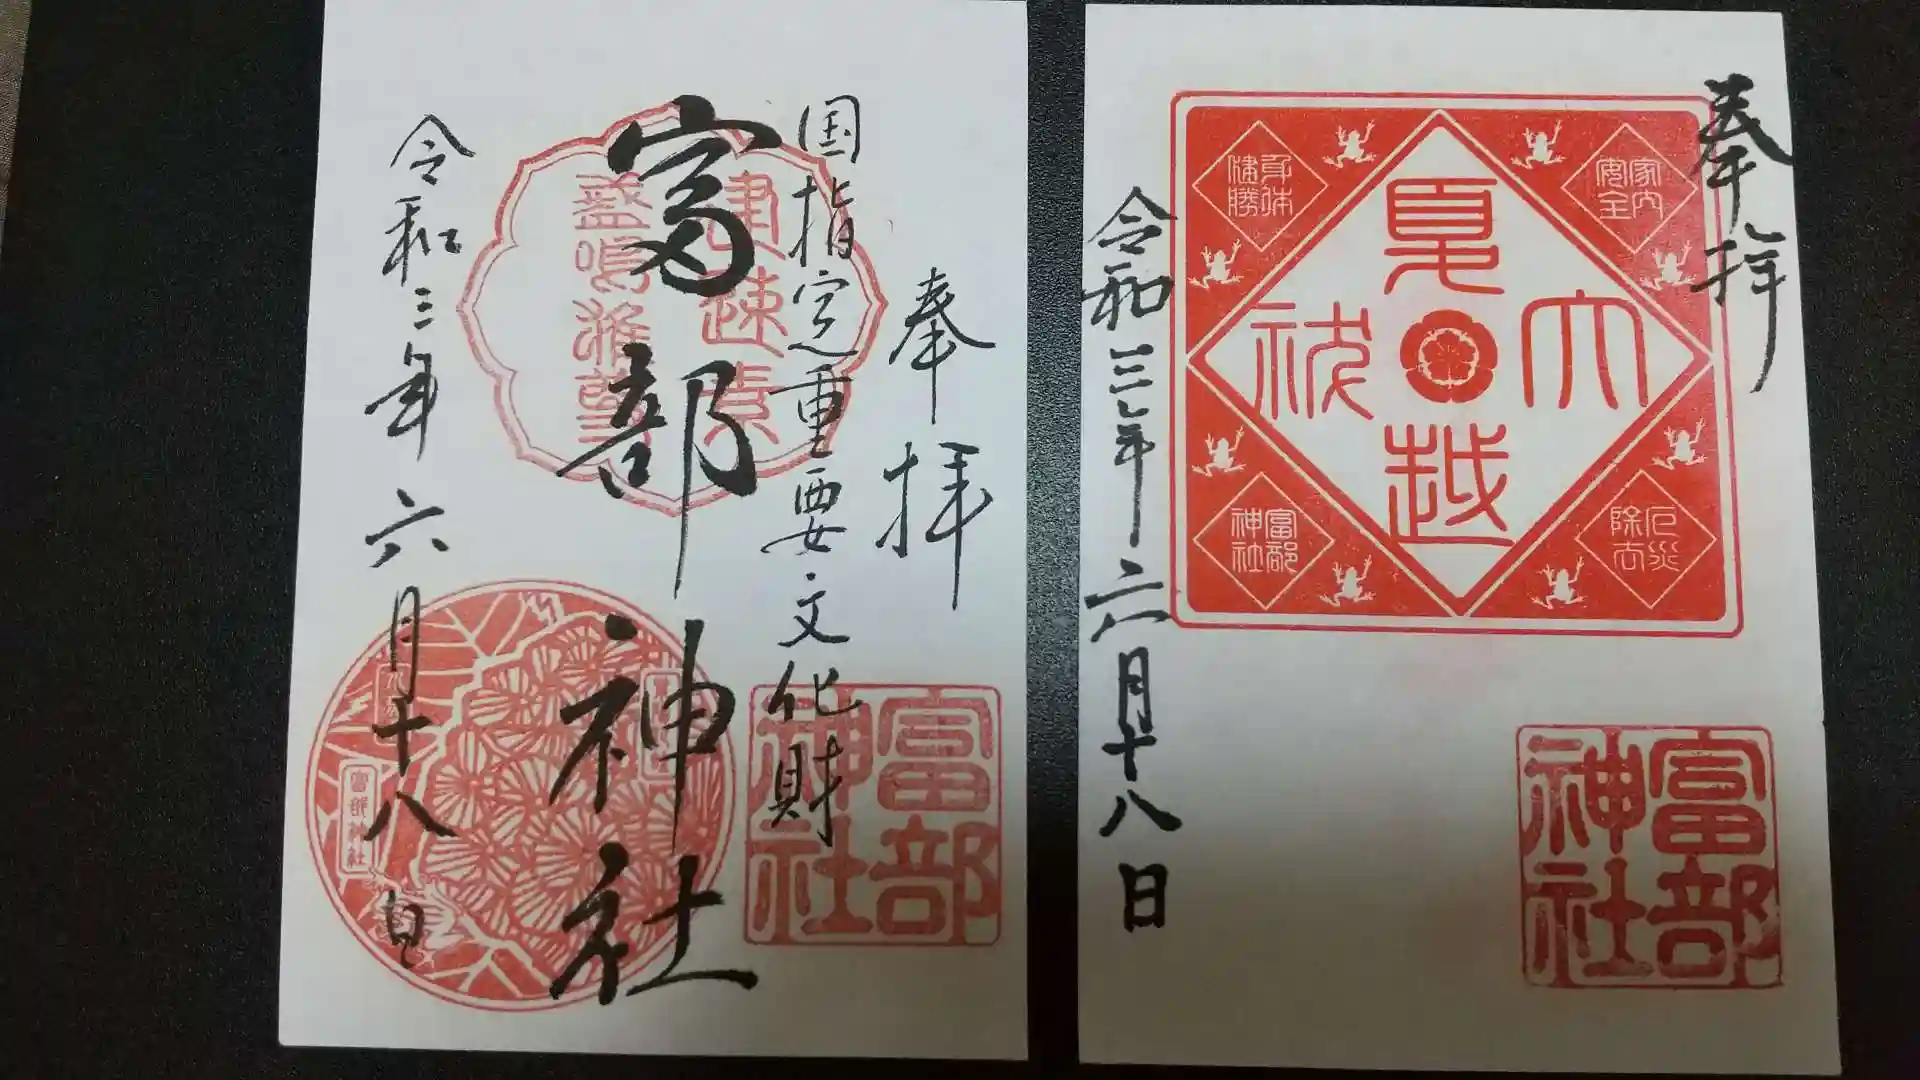 奉拝
国指定重要文化財
富部神社
令和三年六月十八日
富部神社
富部神社
奉拝
夏越
大祓
家内安全
身体健勝
厄災除去
富部神社
富部神社
令和三年六月十八日